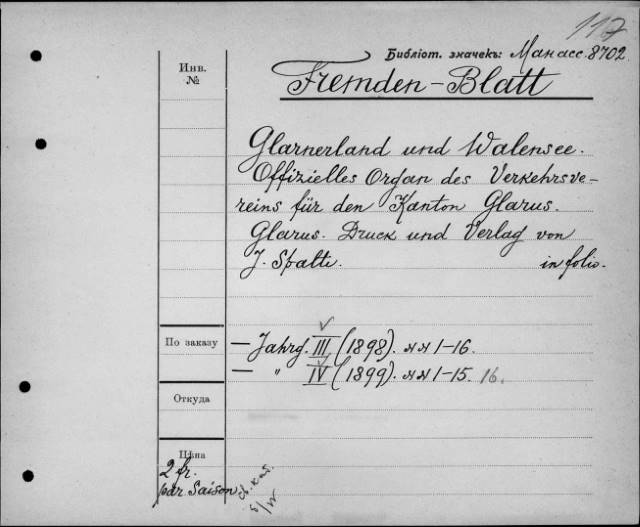 117
Библіот. значекъ: Манасс. 8702.
Инв.
№
Fremden-Blatt
Glarnerland und Walensee.
Offizielles Organ des Verkehrsve-
reins für den Kanton Glarus.
Glarus. Druck und Verlag von
J. Spälti. in folio.
По заказу
— Jahrg. III (1898). №№ 1-16.
— " IV (1899). №№ 1-15. 16.
Откуда
Цѣна
2 fr.
par Saison